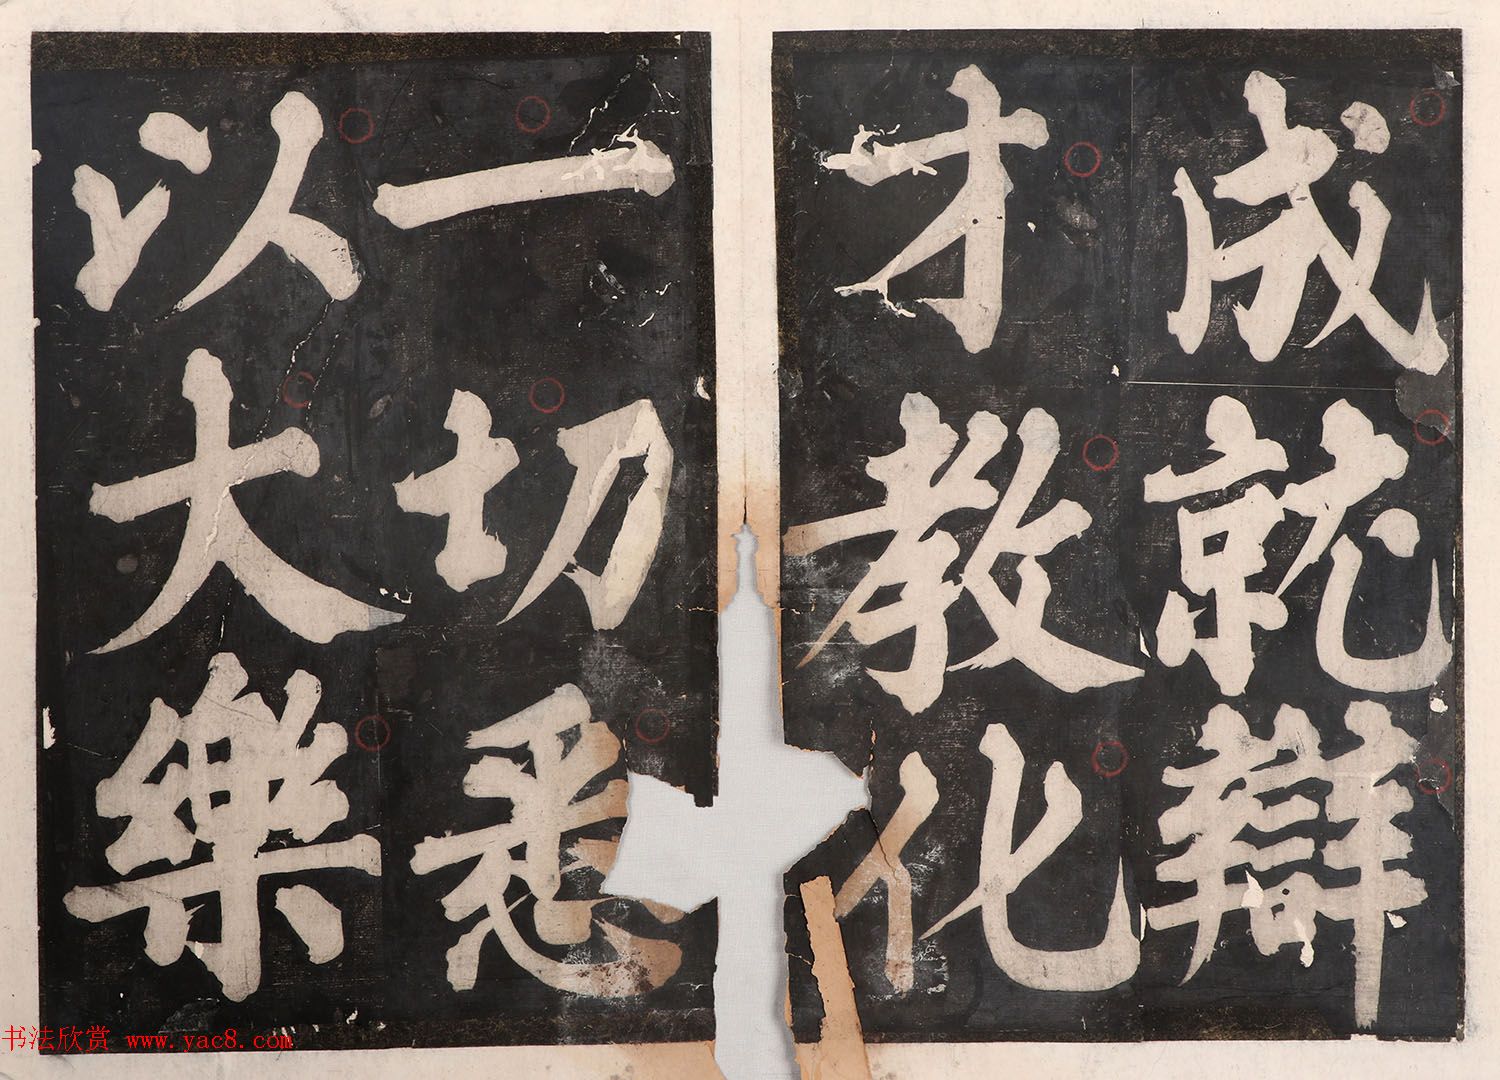 成就辯
才教化
一切悉
以大樂
书法欣赏 www.yac8.com